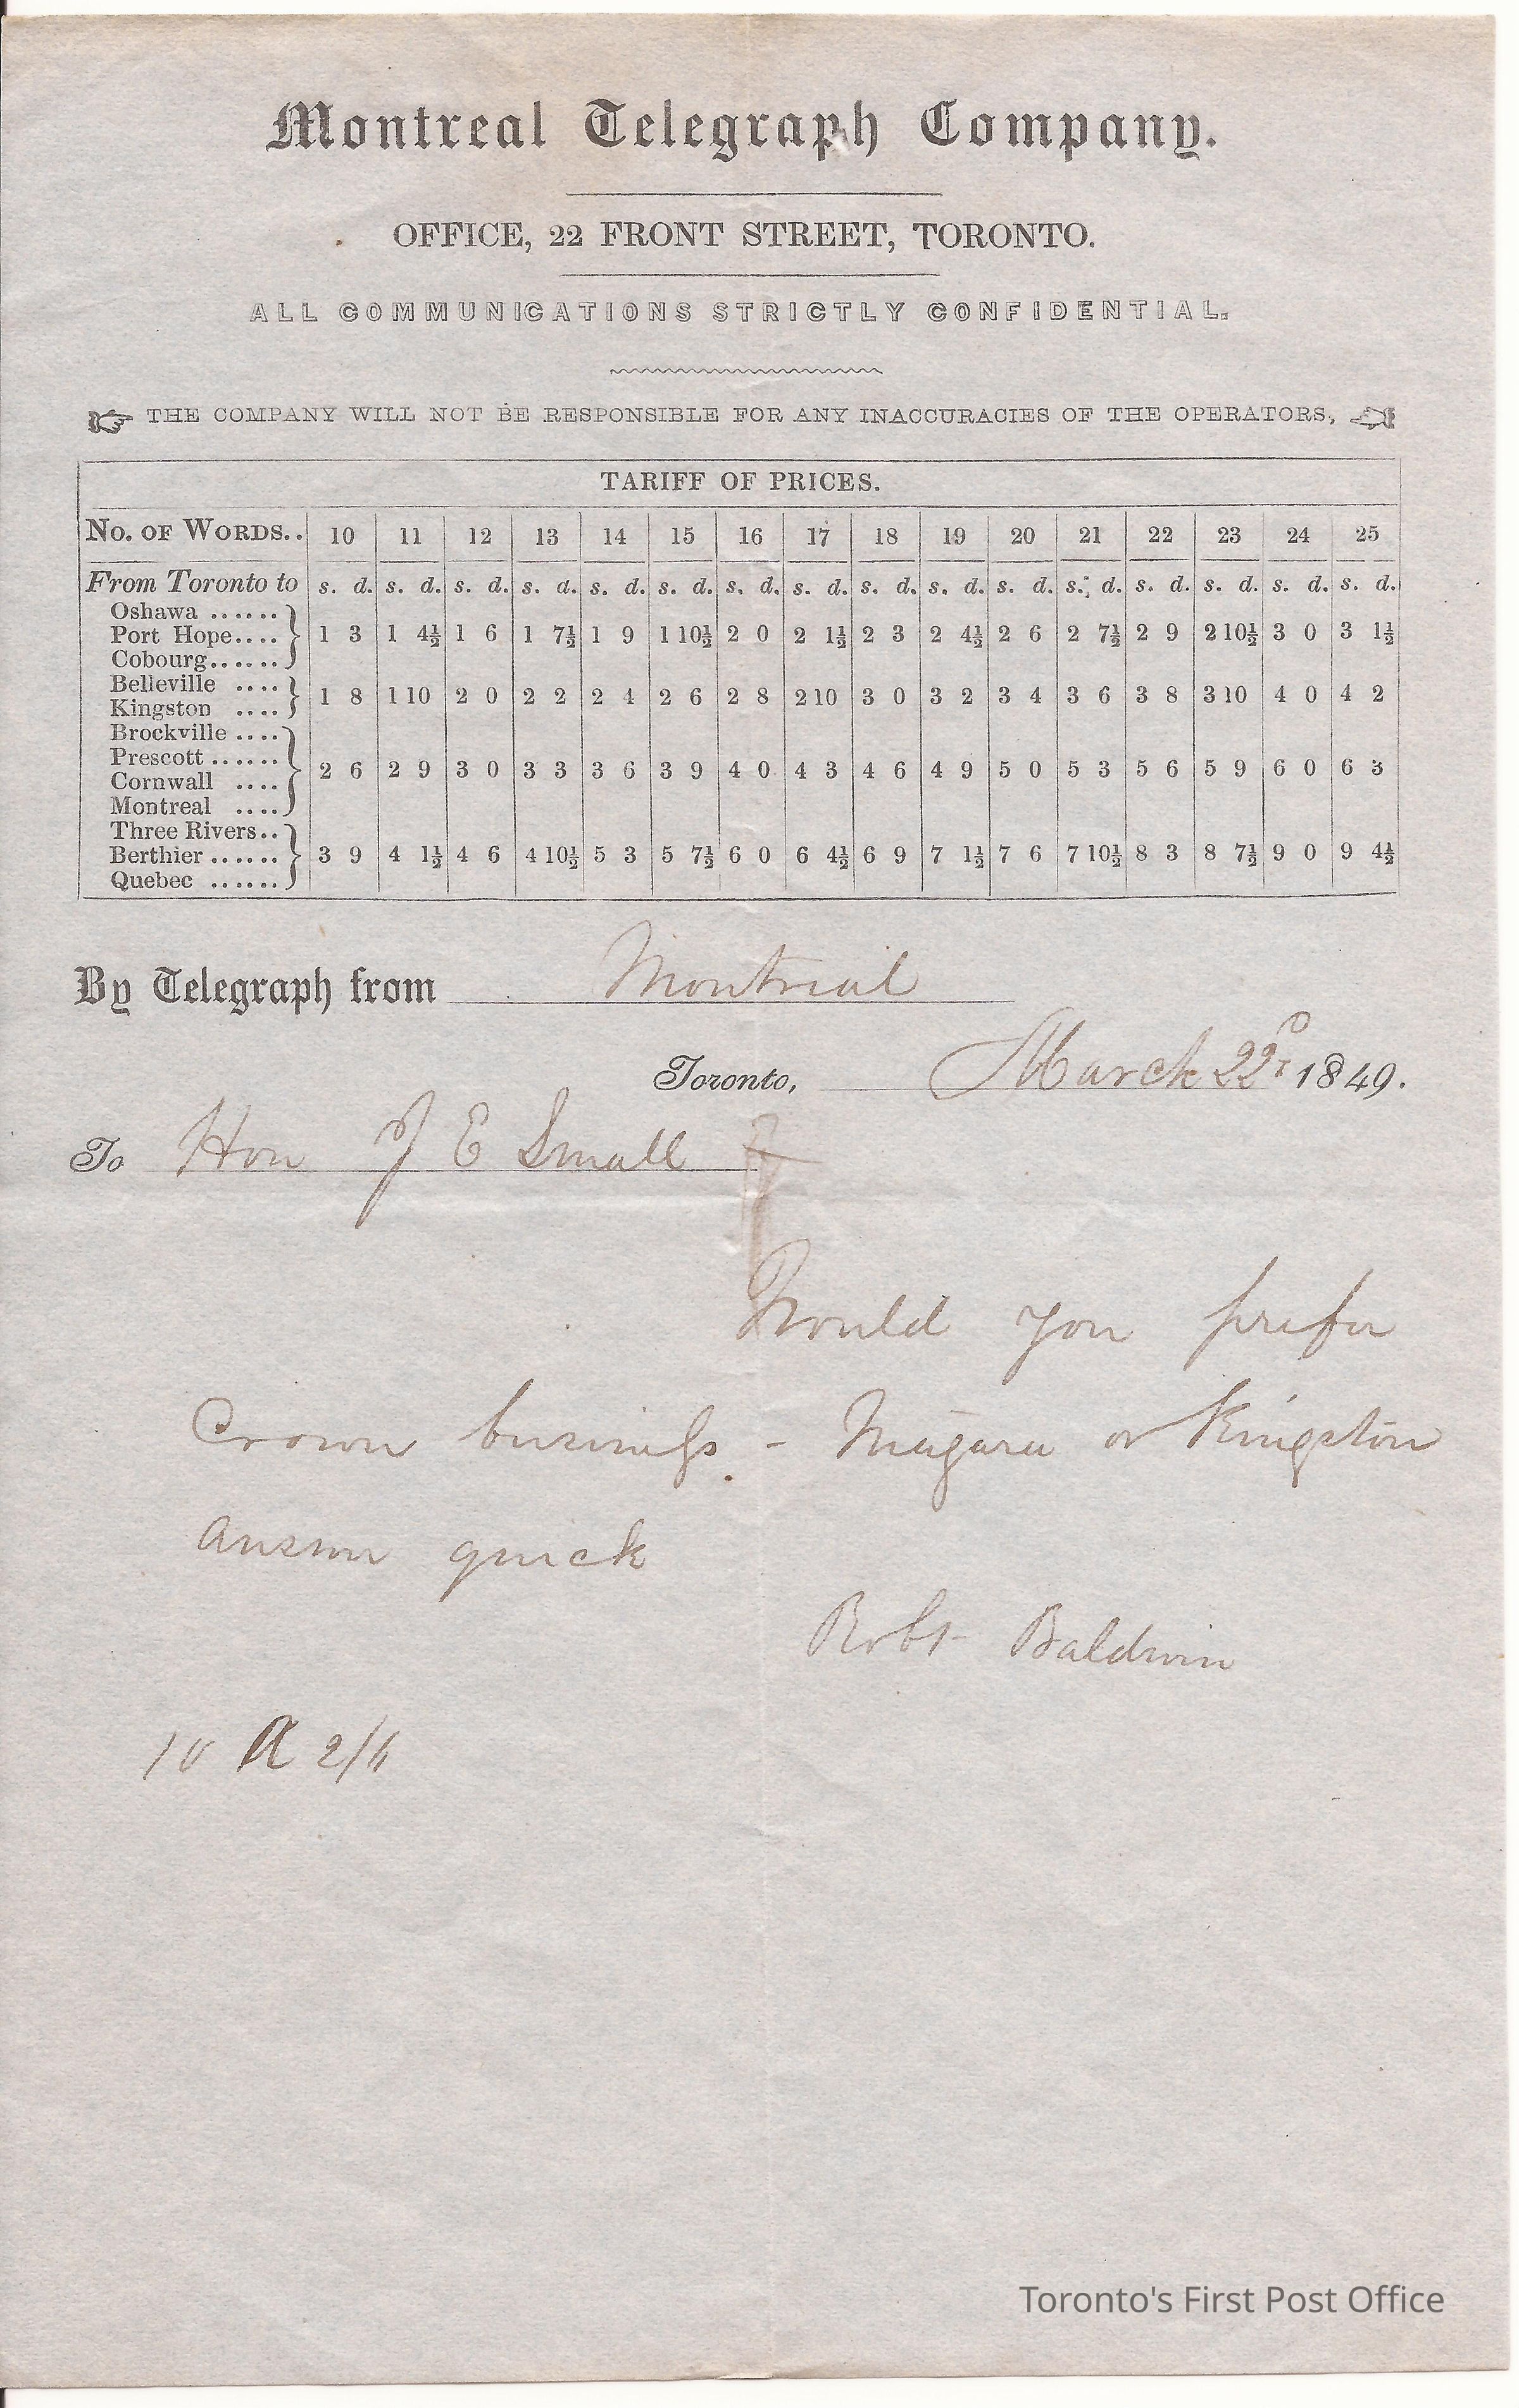 Montreal Telegraph Company.
OFFICE, 22 FRONT STREET, TORONTO.
ALL COMMUNICATIONS STRICTLY CONFIDENTIAL.
THE COMPANY WILL NOT BE RESPONSIBLE FOR ANY INACCURACIES OF THE OPERATORS,
TARIFF OF PRICES.
No. OF WORDS.. 10 11 12 13 14 15 16 17 18 19 20 21 22 23 24 25
From Toronto to s. d. s. d. s. d. s. d. s. d. s. d. s. d. s. d. s. d. s. d. s. d. s. d. s. d. s. d. s. d. s. d.
Oshawa ......
Port Hope.... 1 3 1 4½ 1 6 1 7½ 1 9 1 10½ 2 0 2 1½ 2 3 2 4½ 2 6 2 7½ 2 9 2 10½ 3 0 3 1½
Cobourg......
Belleville ....
Kingston .... 1 8 1 10 2 0 2 2 2 4 2 6 2 8 2 10 3 0 3 2 3 4 3 6 3 8 3 10 4 0 4 2
Brockville ....
Prescott ......
Cornwall .... 2 6 2 9 3 0 3 3 3 6 3 9 4 0 4 3 4 6 4 9 5 0 5 3 5 6 5 9 6 0 6 3
Montreal ....
Three Rivers..
Berthier ...... 3 9 4 1½ 4 6 4 10½ 5 3 5 7½ 6 0 6 4½ 6 9 7 1½ 7 6 7 10½ 8 3 8 7½ 9 0 9 4½
Quebec ......
By Telegraph from Montreal
Toronto, March 22d 1849.
To Hon J E Small
Would you prefer
Crown business - Niagara or Kingston
answer quick
Robt Baldwin
10 A 2/6
Toronto's First Post Office